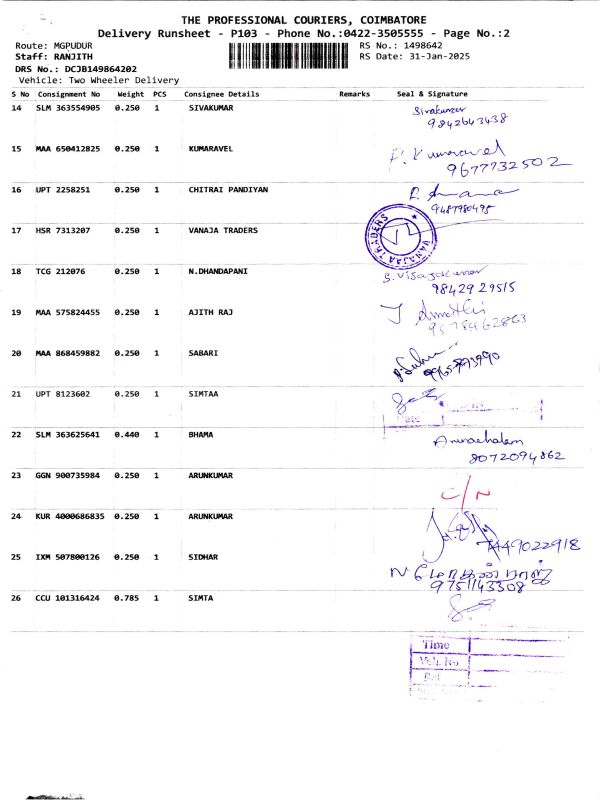 THE PROFESSIONAL COURIERS, COIMBATORE
Delivery Runsheet - P103 - Phone No.:0422-3505555 - Page No.:2
Route: MGPUDUR RS No.: 1498642
Staff: RANJITH RS Date: 31-Jan-2025
DRS No.: DCJB149864202
Vehicle: Two Wheeler Delivery
S No Consignment No Weight PCS Consignee Details Remarks Seal & Signature
14 SLM 363554905 0.250 1 SIVAKUMAR Sivakumar
9842643438
15 MAA 650412825 0.250 1 KUMARAVEL P. Kumaravel
9677732502
16 UPT 2258251 0.250 1 CHITRAI PANDIYAN
9487980495
17 HSR 7313207 0.250 1 VANAJA TRADERS VANAJAA TRADERS
18 TCG 212076 0.250 1 N.DHANDAPANI
98429 29515
19 MAA 575824455 0.250 1 AJITH RAJ
20 MAA 868459882 0.250 1 SABARI
21 UPT 8123602 0.250 1 SIMTAA
Date
22 SLM 363625641 0.440 1 BHAMA Arunachalam
8072094862
23 GGN 900735984 0.250 1 ARUNKUMAR C/N
24 KUR 4000686835 0.250 1 ARUNKUMAR
7449022918
25 IXM 507800126 0.250 1 SIDHAR
9751143308
26 CCU 101316424 0.785 1 SIMTA
Time
Veh. No
Ref